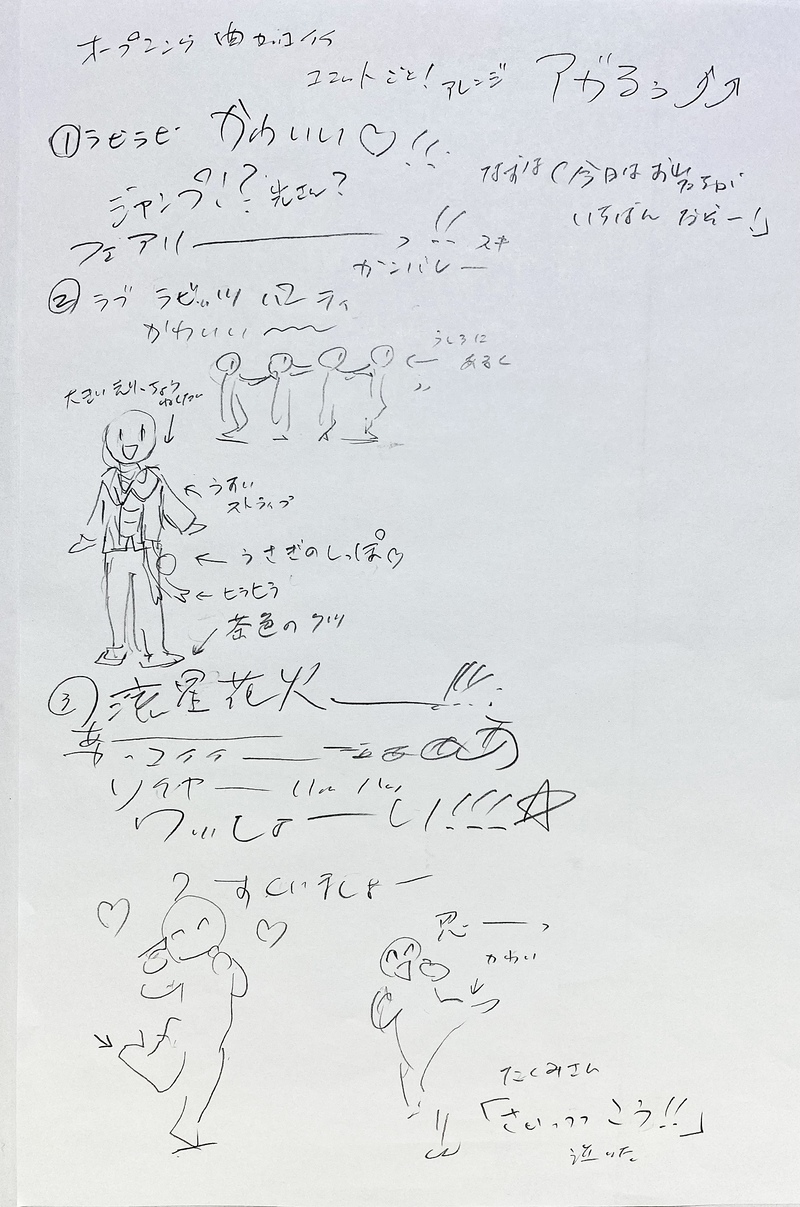 オープニング 曲カッコイイ
ユニットごと! アレンジ アガるぅ⤴⤴
① ラビラビ かわいい♡!!
ジャンプ!?
フェアリーーーっ!! スキ
ガンバレー
なおぼ「今日はお前たちが
いちばん だぞー!」
② ラブ ラビッツ パーティ
かわいい〜〜
うしろに
あるく
大きいえり
うすい
ストライプ
うさぎのしっぽ♡
ヒラヒラ
茶色のクツ
③ 流星花火ーー!!!
ソイヤー
ワッしょーい!!!☆
すくいましょー
かわい
たくみさん
「さいっっっこう!!」
泣いた